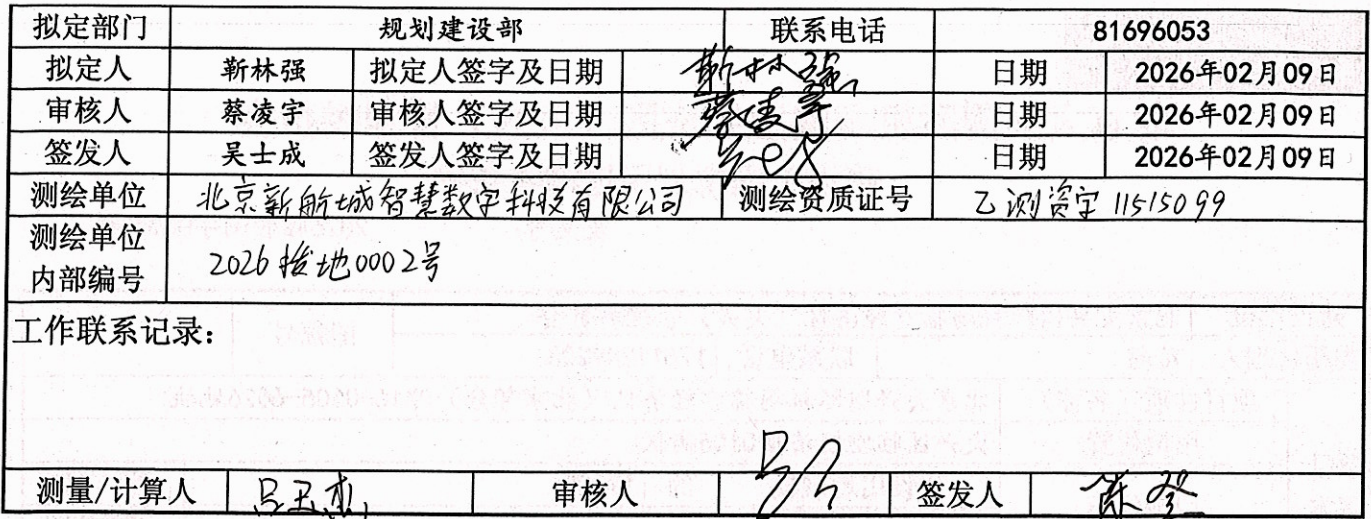 拟定部门 规划建设部 联系电话 81696053
拟定人 靳林强 拟定人签字及日期 靳林强 日期 2026年02月09日
审核人 蔡凌宇 审核人签字及日期 蔡凌宇 日期 2026年02月09日
签发人 吴士成 签发人签字及日期 日期 2026年02月09日
测绘单位 北京新航城智慧数字科技有限公司 测绘资质证号 乙测资字11515099
测绘单位
内部编号 2026拨地0002号
工作联系记录：
测量/计算人 审核人 签发人